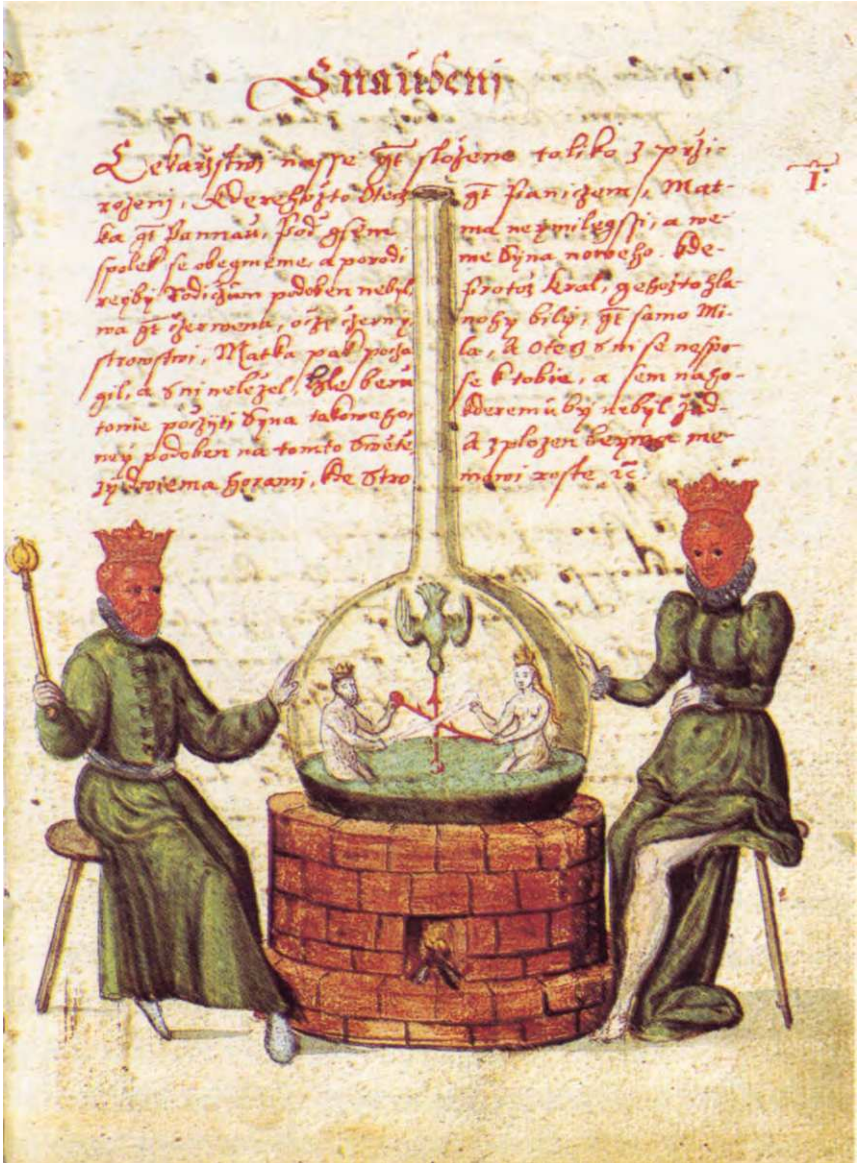 Snaúbenj
Lekarzstwi nasse gt složeno toliko z przi-
rozenj, kderehožto Otecz gt Mat-
ka gt Pannaú, Pod gsem ma neymilegssi, a we-
spolek se obegmeme, a porodi me Syna noweho. kde-
reyby Rodiczúm podoben nebyl, Protož Kral, gehožto hla-
wa gt czerwena, oczi czerny, nohy bily, gt samo Mi-
strowstwi, Matka pak pocza la, A Otecz s ni se nespo-
gil, a s ni neležel, hle berú se k tobie, a sem naho-
towie požiti Syna takoweho, kderemú by nebyl žad-
ney podoben na tomto Swiete, A zplozen beywa me-
zy dwiema horami, kde Stro mowi roste, ꝛc.
I: